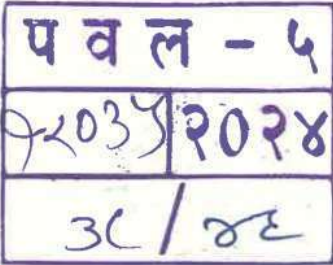 प व ल - ५
१२०३५ २०२४
३८ / ४६